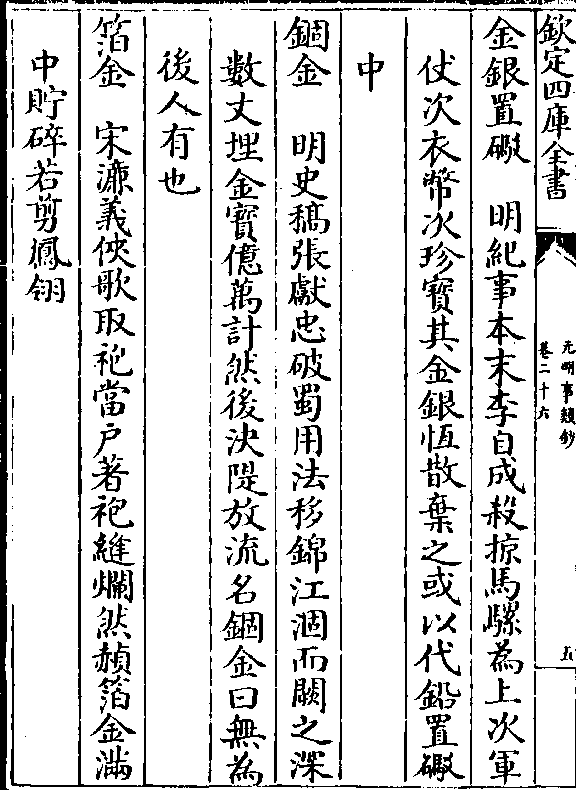 欽定四庫全書
元明事類鈔
卷二十六
五
金銀置礟　明紀事本末李自成殺掠馬騾為上次軍
仗次衣幣次珍寶其金銀恆散棄之或以代鉛置礟
中
錮金　明史稿張獻忠破蜀用法移錦江涸而闕之深
數丈埋金寶億萬計然後決隄放流名錮金曰無為
後人有也
箔金　宋濂義俠歌取袍當户著袍縫爛然赬箔金滿
中貯碎若剪鳳翎